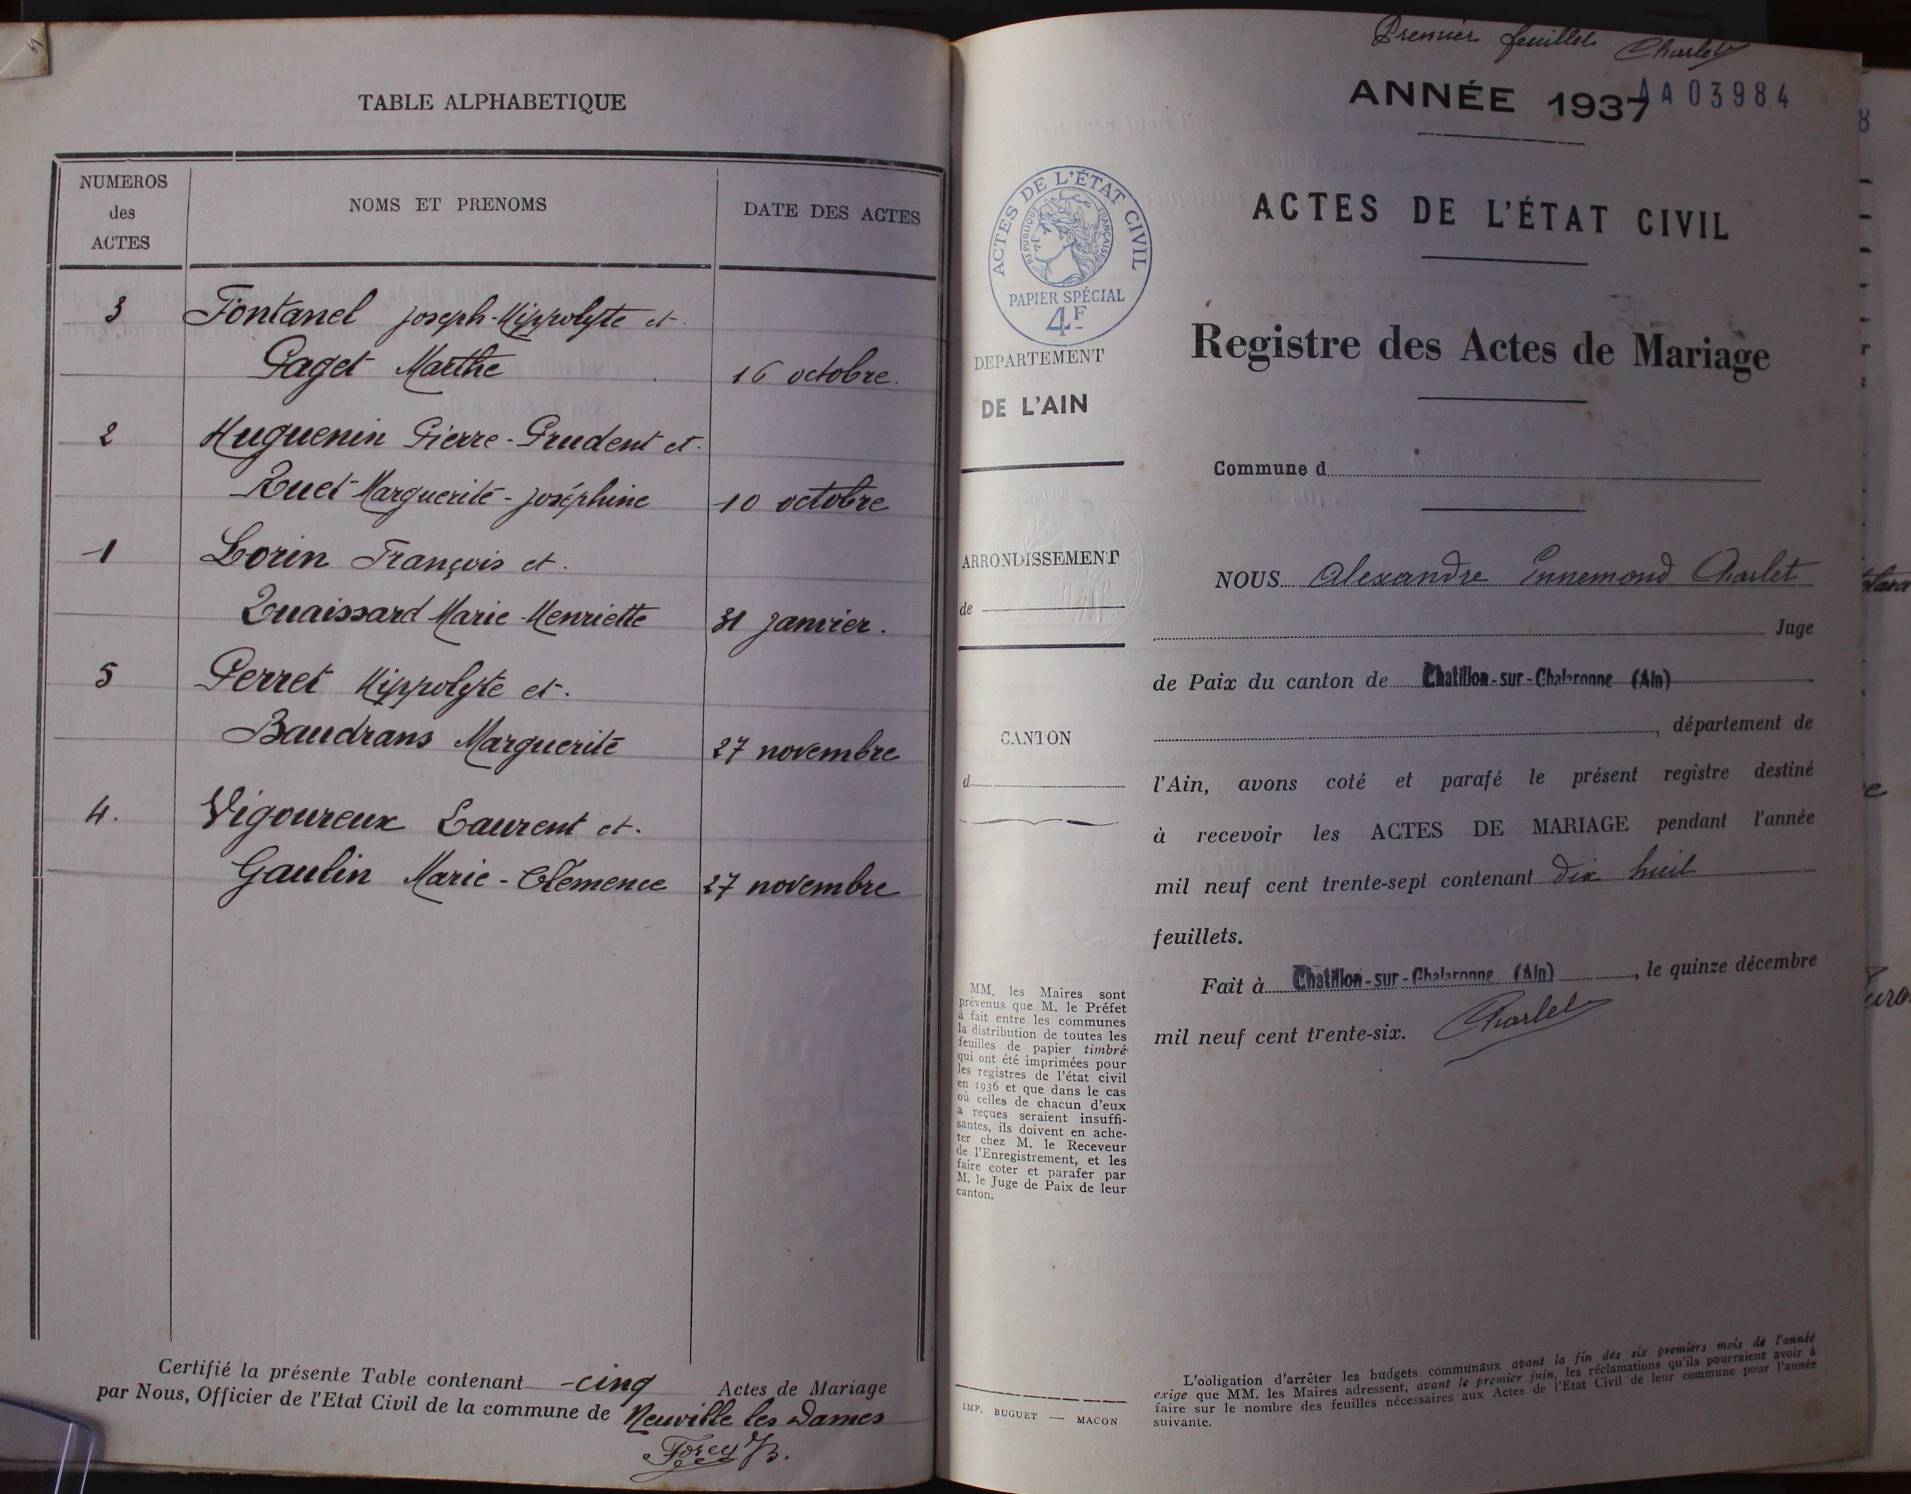 TABLE ALPHABETIQUE
NUMEROS
des
ACTES
NOMS ET PRENOMS
DATE DES ACTES
3 Fontanel Joseph-Hippolyte et
Paget Marthe 16 octobre.
2 Huguenin Pierre-Prudent et
Ruet Marguerite-Joséphine 10 octobre
1 Lorin François et.
Quaissard Marie-Henriette 31 janvier.
5 Perret Hippolyte et.
Baudrans Marguerite 27 novembre
4. Vigoureux Laurent et.
Gaulin Marie-Clémence 27 novembre
Certifié la présente Table contenant cinq Actes de Mariage
par Nous, Officier de l'Etat Civil de la commune de Neuville les Dames
Premier feuillet Charlet
ANNÉE 1937
AA 03984
ACTES DE L'ÉTAT CIVIL
RÉPUBLIQUE FRANÇAISE
PAPIER SPÉCIAL
4F
DEPARTEMENT
DE L'AIN
ARRONDISSEMENT
de
CANTON
d
MM. les Maires sont
prévenus que M. le Préfet
à fait entre les communes
la distribution de toutes les
feuilles de papier timbré
qui ont été imprimées pour
les registres de l'état civil
en 1936 et que dans le cas
où celles de chacun d'eux
a reçues seraient insuffi-
santes, ils doivent en ache-
ter chez M. le Receveur
de l'Enregistrement, et les
faire coter et parafer par
M. le Juge de Paix de leur
canton.
IMP. BUGUET — MACON
ACTES DE L'ÉTAT CIVIL
Registre des Actes de Mariage
Commune d
NOUS Alexandre Ennemond Charlet
Juge
de Paix du canton de Chatillon-sur-Chalaronne (Ain)
, département de
l'Ain, avons coté et parafé le présent registre destiné
à recevoir les ACTES DE MARIAGE pendant l'année
mil neuf cent trente-sept contenant dix huit
feuillets.
Fait à Chatillon-sur-Chalaronne (Ain), le quinze décembre
mil neuf cent trente-six. Charlet
L'obligation d'arrêter les budgets communaux avant la fin des six premiers mois de l'année
exige que MM. les Maires adressent, avant le premier juin, les réclamations qu'ils pourraient avoir à
faire sur le nombre des feuilles nécessaires aux Actes de l'Etat Civil de leur commune pour l'année
suivante.